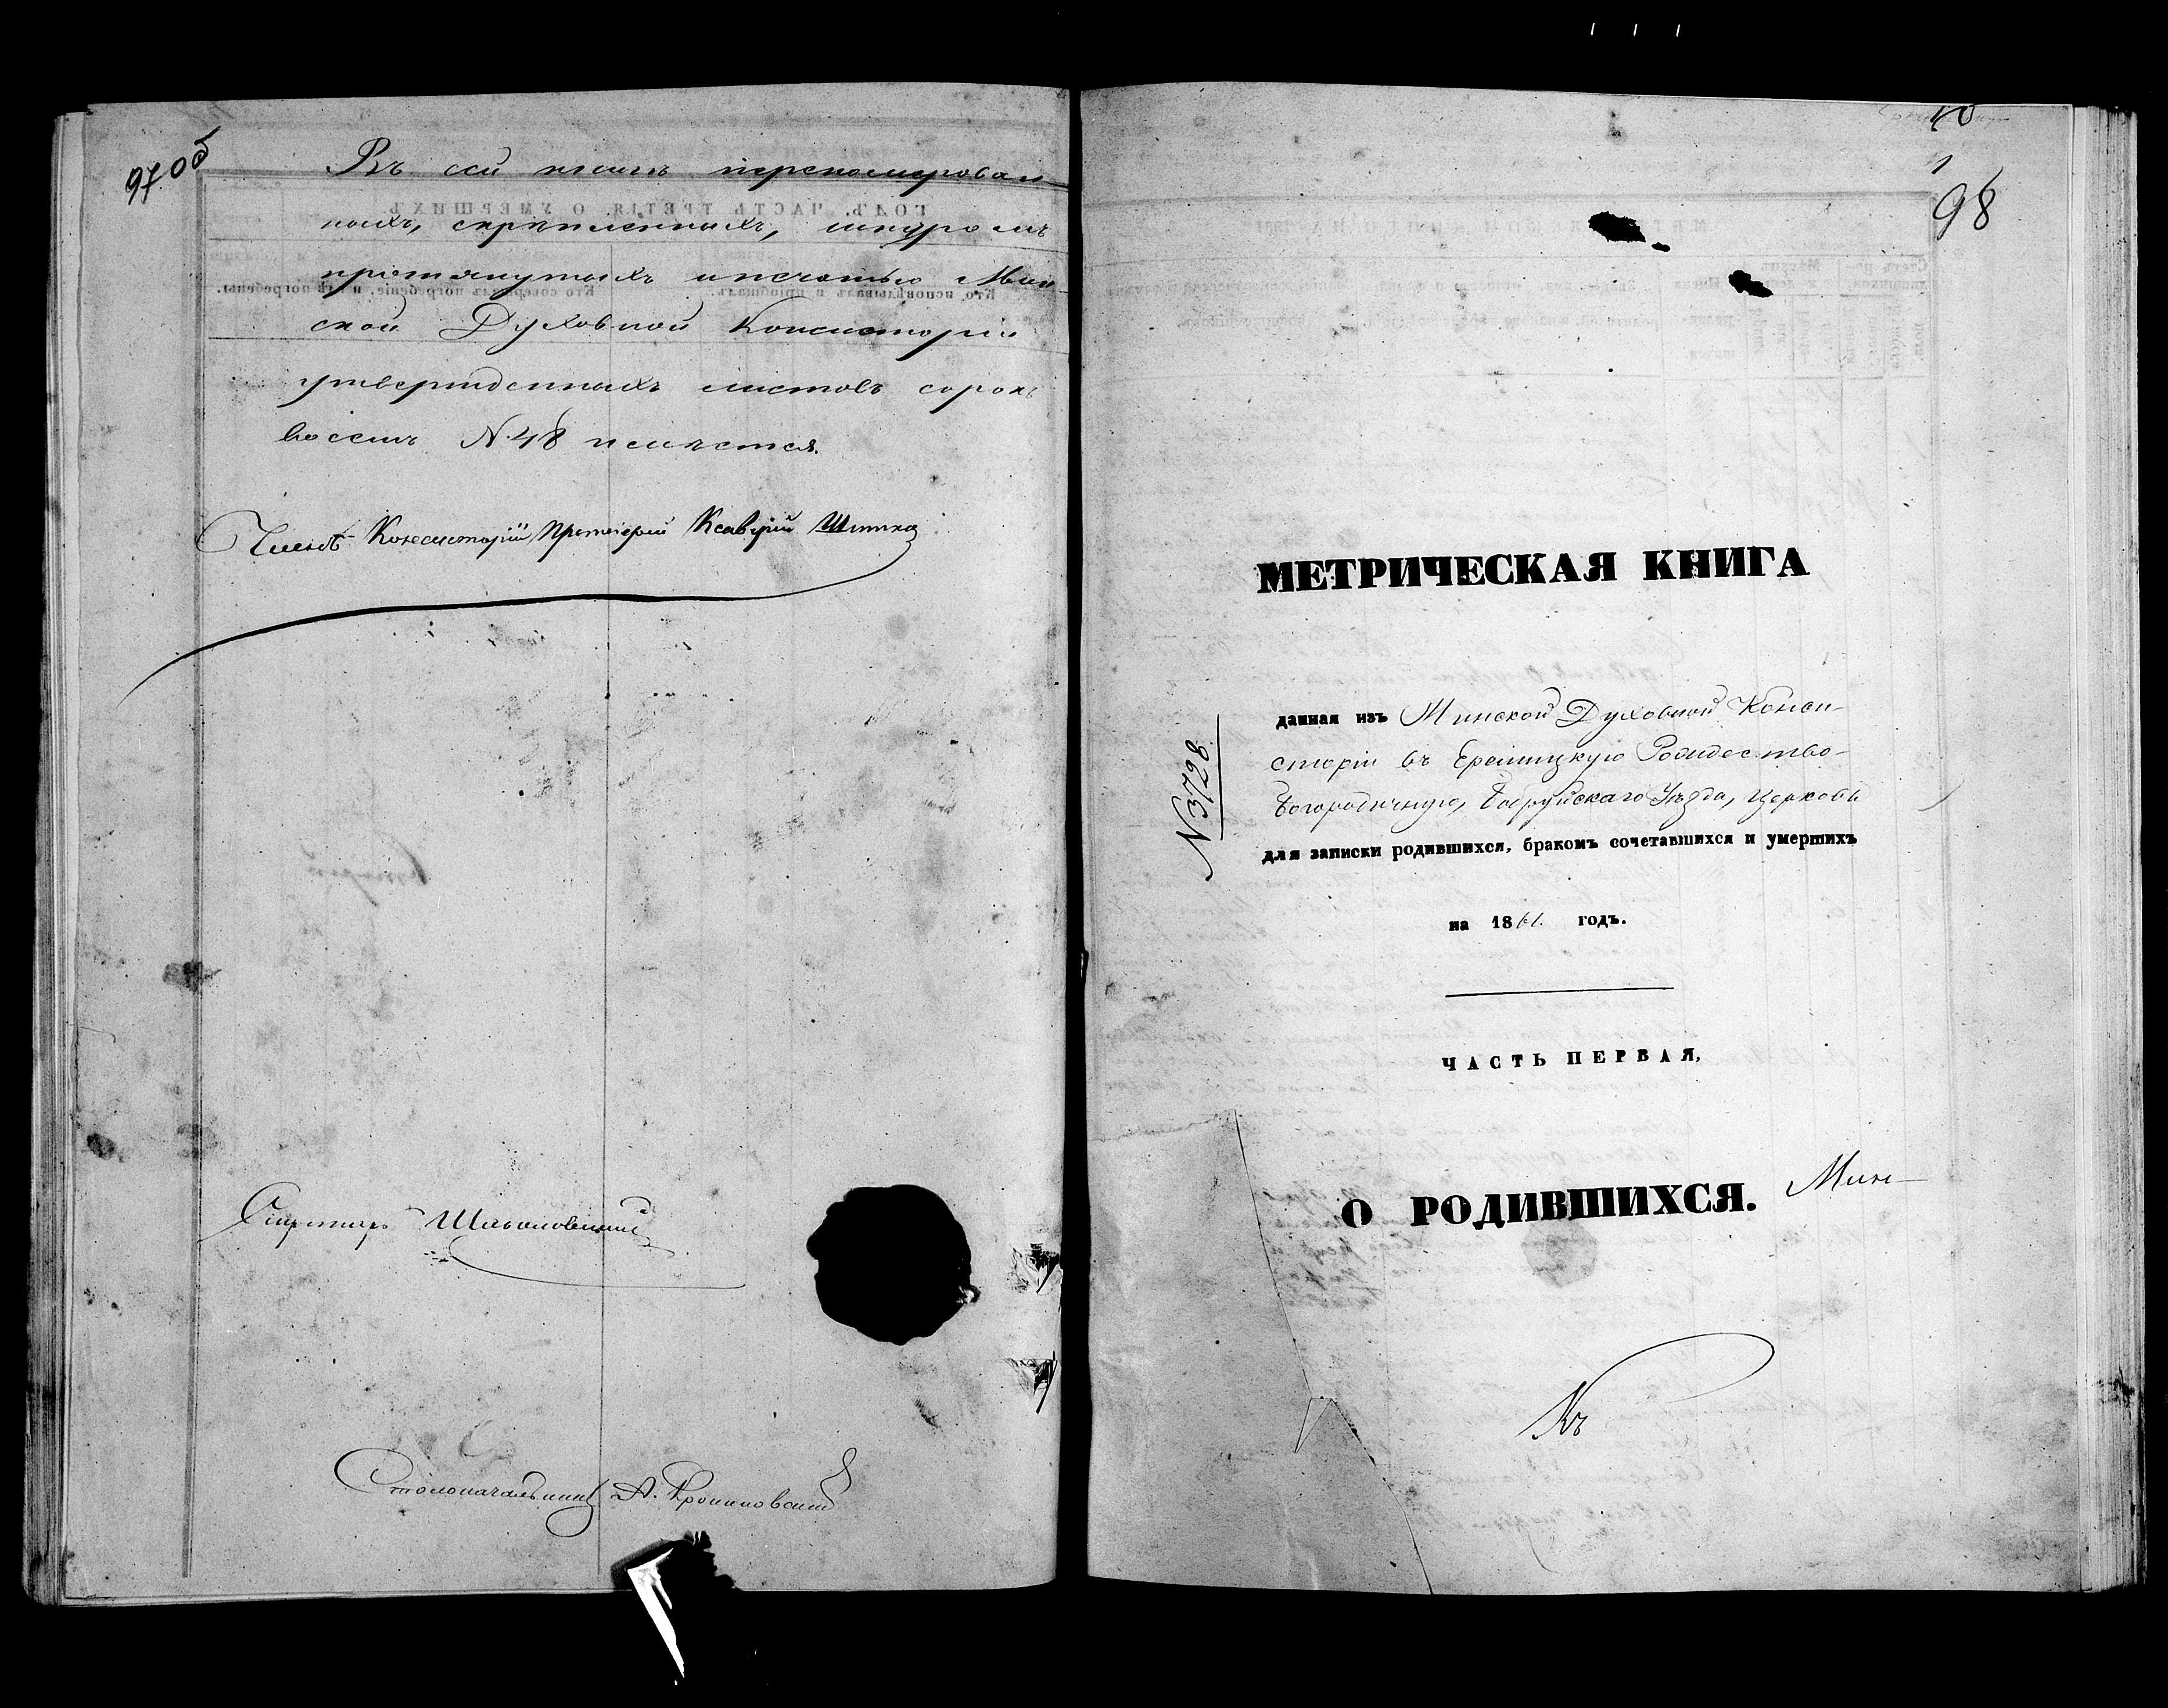 97 об
Въ сей книгѣ перенумерован-
ныхъ, скрѣпленныхъ, шнуромъ
протянутыхъ и печатью Мин-
ской Духовной Консисторіи
утвержденныхъ листовъ сорокъ
восемь N. 48 имѣется.
Членъ Консисторіи Протоіерей Ксаверій
Секретарь
Столоначальникъ А.
1
98
МЕТРИЧЕСКАЯ КНИГА
N 3728
данная изъ Минской Духовной Конси-
сторіи въ Еремицкую Рождество-
Богородичную, Бобруйскаго Уѣзда, церковь
для записки родившихся, бракомъ сочетавшихся и умершихъ
на 1861. годъ.
ЧАСТЬ ПЕРВАЯ,
О РОДИВШИХСЯ.
Мин-
Къ